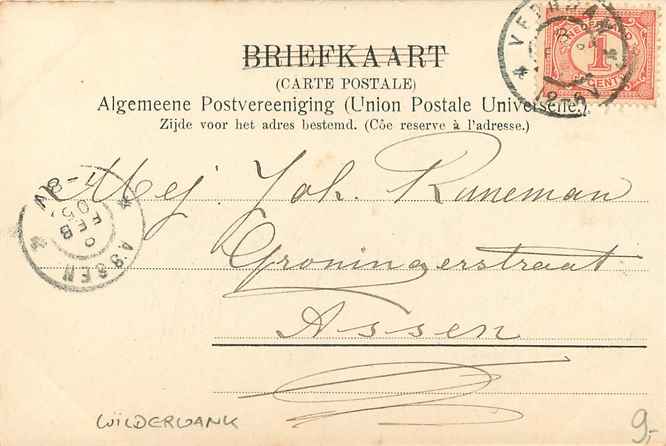 BRIEFKAART
(CARTE POSTALE)
Algemeene Postvereeniging (Union Postale Universelle.)
Zijde voor het adres bestemd. (Côe reserve à l'adresse.)
NEDERLAND
1
CENT
Mej. Joh. Kuneman
Groningerstraat
Assen
ASSEN
FEB
WILDERVANK
9-